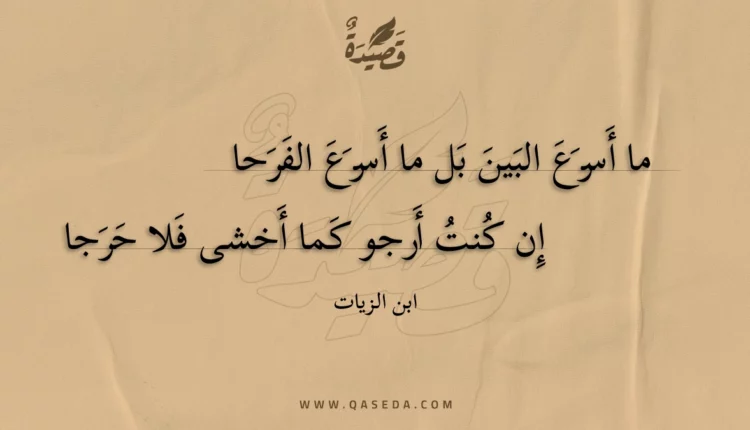 قَصِيدَةٌ
ما أَسرَعَ البَينَ بَل ما أَسرَعَ الفَرَحا
إِن كُنتُ أَرجو كَما أَخشى فَلا حَرَجا
ابن الزيات
WWW.QASEDA.COM